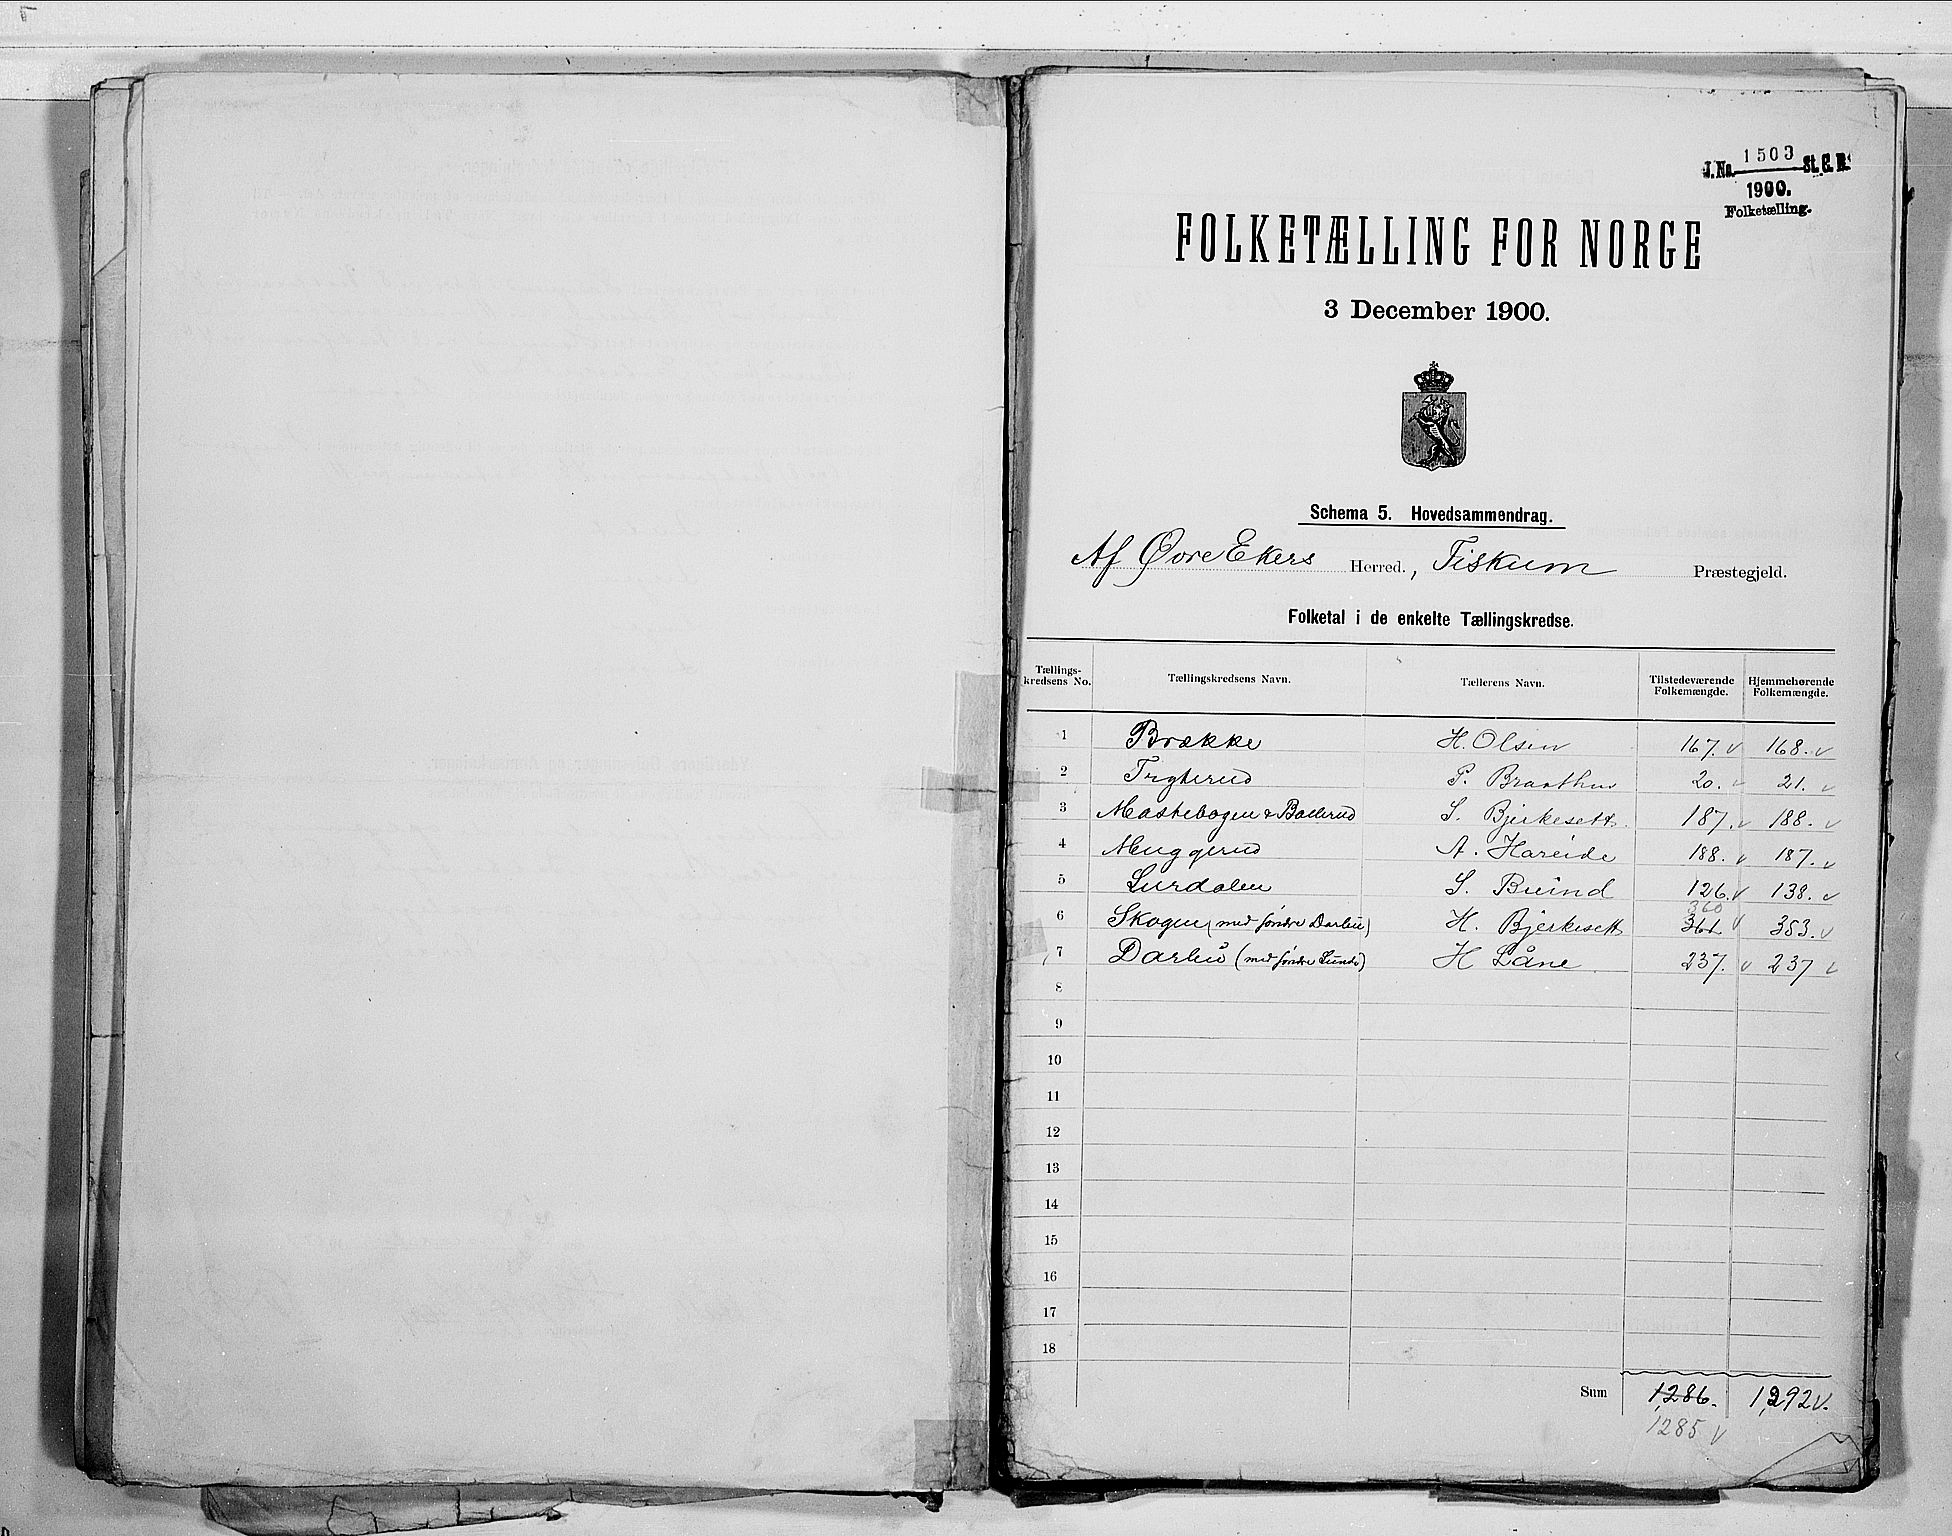 J.No. 1503 St. C. B.
1900.
Folketælling.
FOLKETÆLLING FOR NORGE
3 December 1900.
Schema 5. Hovedsammendrag.
Af Øvre Ekers Herred., Fiskum Præstegjeld.
Folketal i de enkelte Tællingskredse.
Tællings-kredsens No. Tællingskredsens Navn. Tællerens Navn. Tilstedeværende Folkemængde. Hjemmehørende Folkemængde.
1 Brække H. Olsen 167. v 168. v
2 Trgterud P. Braathen 20. v 21. v
3 Mastebogen & Ballerud S. Bjerkesett. 187. v 188. v
4 Muggerud A. Hareide 188. v 187. v
5 Surdalen S. Buind 126. v 138. v
360
6 Skogen (med søndre Darbu) H. Bjerkesett 361. v 353. v
7 Darbu (med søndre Lunde) H Låne 237. v 237 v
8
9
10
11
12
13
14
15
16
17
18
Sum 1,286. 1,292 v.
1285 v